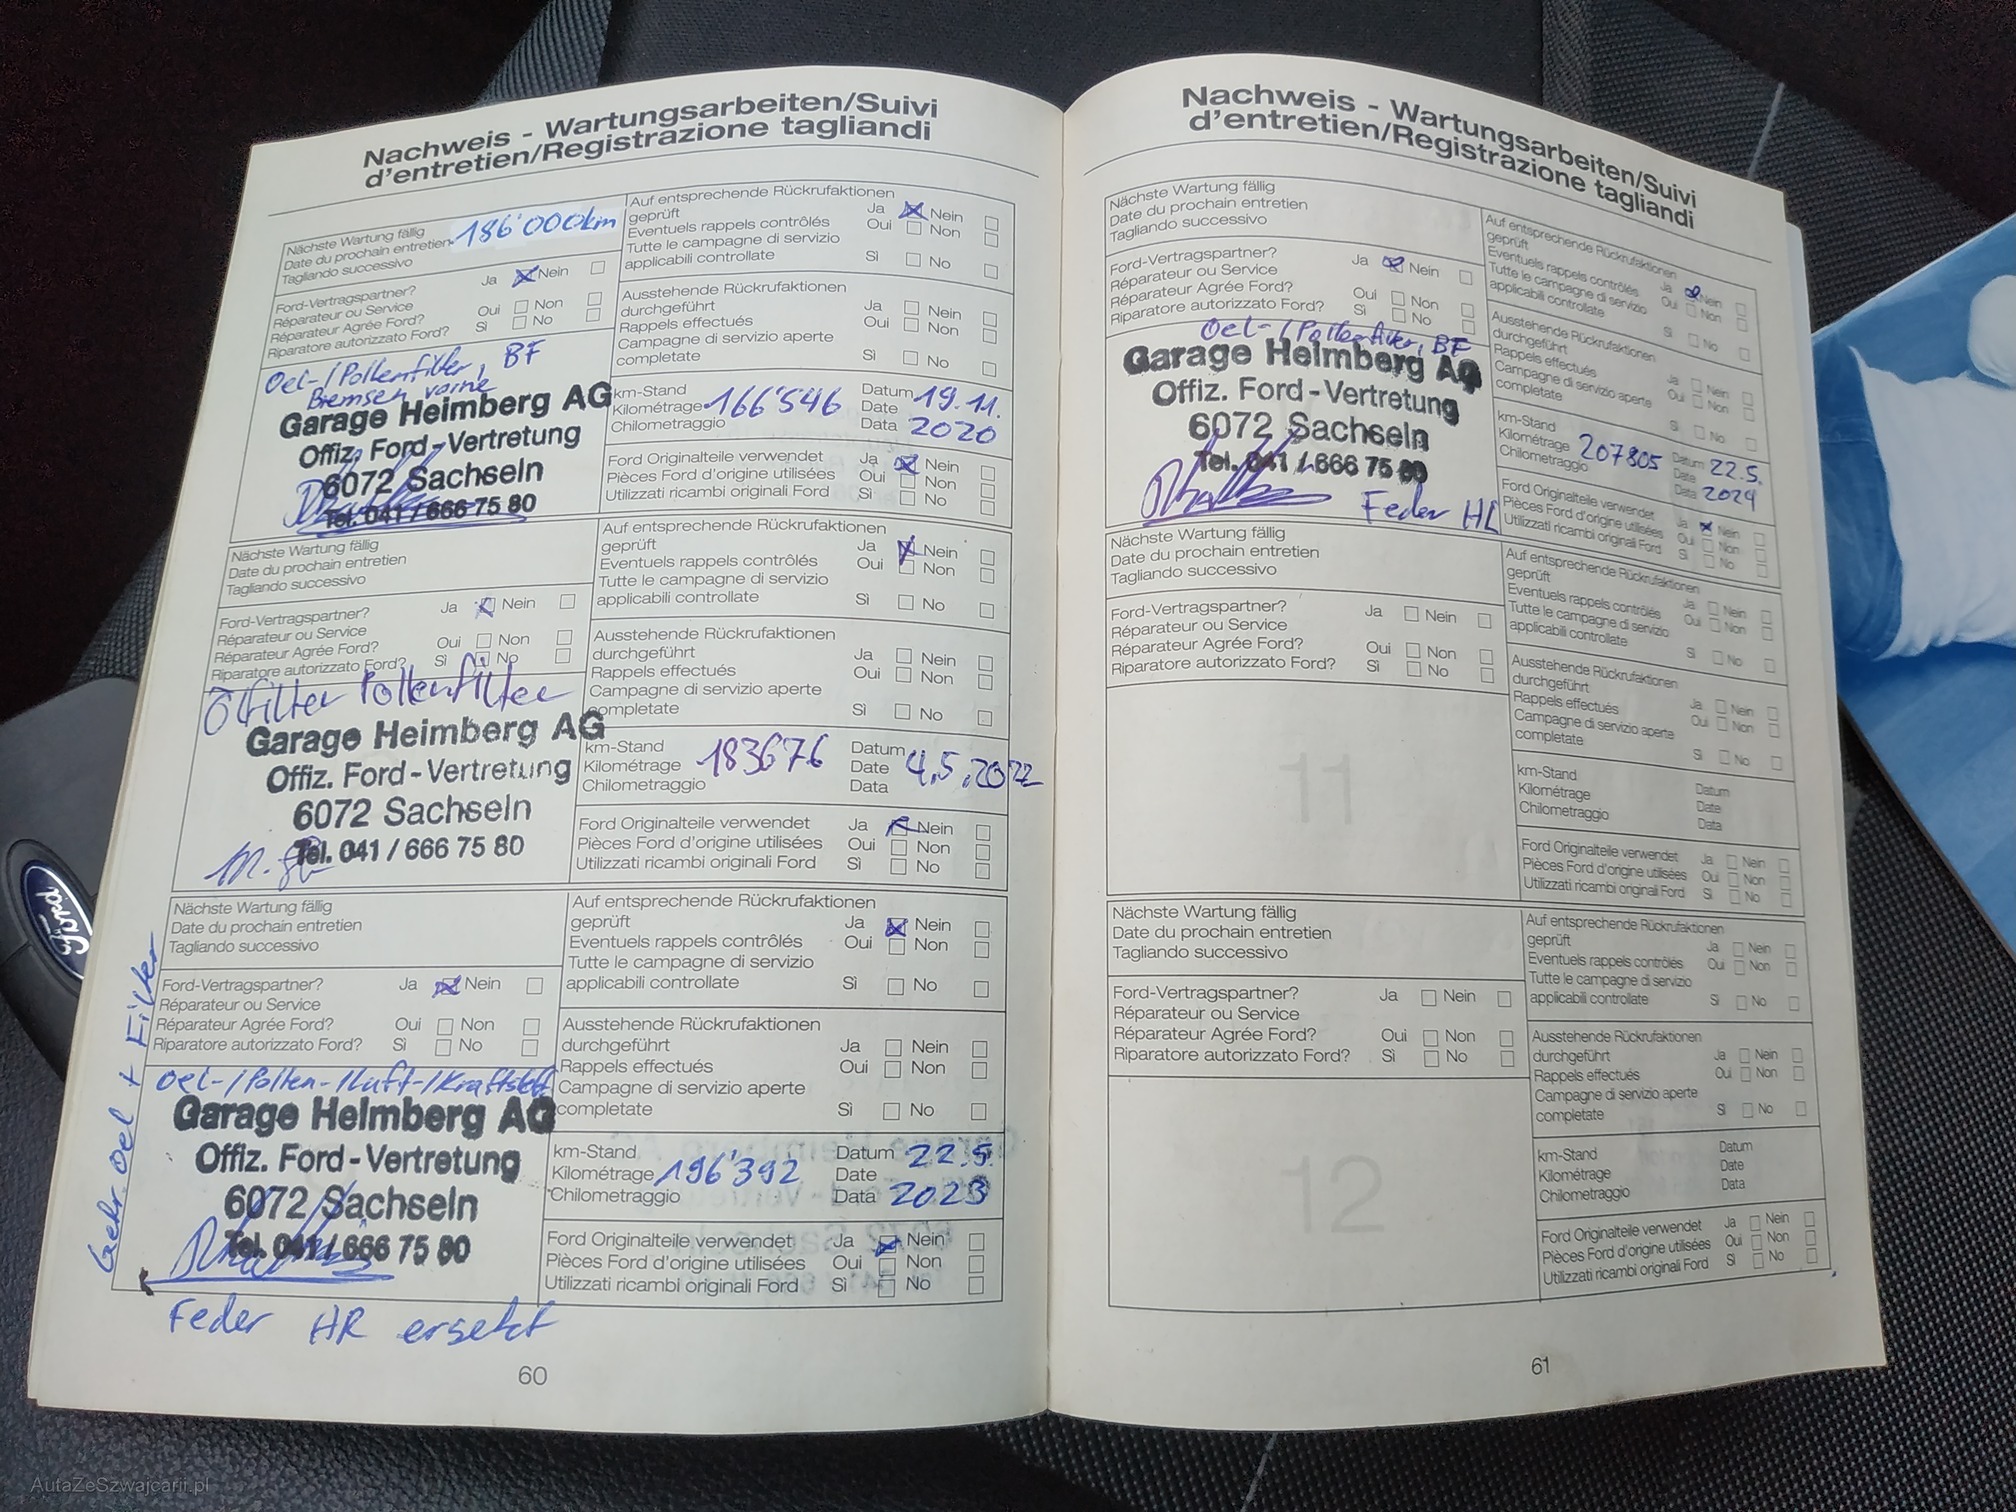 Nachweis - Wartungsarbeiten/Suivi
d'entretien/Registrazione tagliandi
Nächste Wartung fällig
Date du prochain entretien 186'000km
Tagliando successivo
Ford-Vertragspartner? Ja Nein
Réparateur ou Service
Réparateur Agrée Ford? Oui Non
Riparatore autorizzato Ford? Sì No
Oel-/Pollenfilter, BF
Bremsen vorne
Garage Heimberg AG
Offiz. Ford-Vertretung
6072 Sachseln
Tel. 041 / 666 75 80
Auf entsprechende Rückrufaktionen
geprüft Ja Nein
Eventuels rappels contrôlés Oui Non
Tutte le campagne di servizio
applicabili controllate Sì No
Ausstehende Rückrufaktionen
durchgeführt Ja Nein
Rappels effectués Oui Non
Campagne di servizio aperte
completate Sì No
km-Stand Datum 19.11.
Kilométrage 166'546 Date
Chilometraggio Data 2020
Ford Originalteile verwendet Ja Nein
Pièces Ford d'origine utilisées Oui Non
Utilizzati ricambi originali Ford Sì No
Nächste Wartung fällig
Date du prochain entretien
Tagliando successivo
Ford-Vertragspartner? Ja Nein
Réparateur ou Service
Réparateur Agrée Ford? Oui Non
Riparatore autorizzato Ford? Sì No
Ölfilter Pollenfilter
Garage Heimberg AG
Offiz. Ford-Vertretung
6072 Sachseln
Tel. 041 / 666 75 80
Auf entsprechende Rückrufaktionen
geprüft Ja Nein
Eventuels rappels contrôlés Oui Non
Tutte le campagne di servizio
applicabili controllate Sì No
Ausstehende Rückrufaktionen
durchgeführt Ja Nein
Rappels effectués Oui Non
Campagne di servizio aperte
completate Sì No
km-Stand Datum
Kilométrage 183676 Date 4.5.2022
Chilometraggio Data
Ford Originalteile verwendet Ja Nein
Pièces Ford d'origine utilisées Oui Non
Utilizzati ricambi originali Ford Sì No
Nächste Wartung fällig
Date du prochain entretien
Tagliando successivo
Ford-Vertragspartner? Ja Nein
Réparateur ou Service
Réparateur Agrée Ford? Oui Non
Riparatore autorizzato Ford? Sì No
Oel-/Pollen-/Luft-/Kraftstoff
Garage Heimberg AG
Offiz. Ford-Vertretung
6072 Sachseln
Tel. 041 / 666 75 80
Getr.oel + Filter
Feder HR ersetzt
Auf entsprechende Rückrufaktionen
geprüft Ja Nein
Eventuels rappels contrôlés Oui Non
Tutte le campagne di servizio
applicabili controllate Sì No
Ausstehende Rückrufaktionen
durchgeführt Ja Nein
Rappels effectués Oui Non
Campagne di servizio aperte
completate Sì No
km-Stand Datum 22.5.
Kilométrage 196'392 Date
Chilometraggio Data 2023
Ford Originalteile verwendet Ja Nein
Pièces Ford d'origine utilisées Oui Non
Utilizzati ricambi originali Ford Sì No
60
Nachweis - Wartungsarbeiten/Suivi
d'entretien/Registrazione tagliandi
Nächste Wartung fällig
Date du prochain entretien
Tagliando successivo
Ford-Vertragspartner? Ja Nein
Réparateur ou Service
Réparateur Agrée Ford? Oui Non
Riparatore autorizzato Ford? Sì No
Oel-/Pollenfilter, BF
Garage Heimberg AG
Offiz. Ford-Vertretung
6072 Sachseln
Tel. 041 / 666 75 80
Feder HL
Auf entsprechende Rückrufaktionen
geprüft Ja Nein
Eventuels rappels contrôlés Oui Non
Tutte le campagne di servizio
applicabili controllate Sì No
Ausstehende Rückrufaktionen
durchgeführt Ja Nein
Rappels effectués Oui Non
Campagne di servizio aperte
completate Sì No
km-Stand Datum 22.5.
Kilométrage 207805 Date
Chilometraggio Data 2024
Ford Originalteile verwendet Ja Nein
Pièces Ford d'origine utilisées Oui Non
Utilizzati ricambi originali Ford Sì No
Nächste Wartung fällig
Date du prochain entretien
Tagliando successivo
Ford-Vertragspartner? Ja Nein
Réparateur ou Service
Réparateur Agrée Ford? Oui Non
Riparatore autorizzato Ford? Sì No
11
Auf entsprechende Rückrufaktionen
geprüft Ja Nein
Eventuels rappels contrôlés Oui Non
Tutte le campagne di servizio
applicabili controllate Sì No
Ausstehende Rückrufaktionen
durchgeführt Ja Nein
Rappels effectués Oui Non
Campagne di servizio aperte
completate Sì No
km-Stand Datum
Kilométrage Date
Chilometraggio Data
Ford Originalteile verwendet Ja Nein
Pièces Ford d'origine utilisées Oui Non
Utilizzati ricambi originali Ford Sì No
Nächste Wartung fällig
Date du prochain entretien
Tagliando successivo
Ford-Vertragspartner? Ja Nein
Réparateur ou Service
Réparateur Agrée Ford? Oui Non
Riparatore autorizzato Ford? Sì No
12
Auf entsprechende Rückrufaktionen
geprüft Ja Nein
Eventuels rappels contrôlés Oui Non
Tutte le campagne di servizio
applicabili controllate Sì No
Ausstehende Rückrufaktionen
durchgeführt Ja Nein
Rappels effectués Oui Non
Campagne di servizio aperte
completate Sì No
km-Stand Datum
Kilométrage Date
Chilometraggio Data
Ford Originalteile verwendet Ja Nein
Pièces Ford d'origine utilisées Oui Non
Utilizzati ricambi originali Ford Sì No
61
Ford
AutaZeSzwajcarii.pl